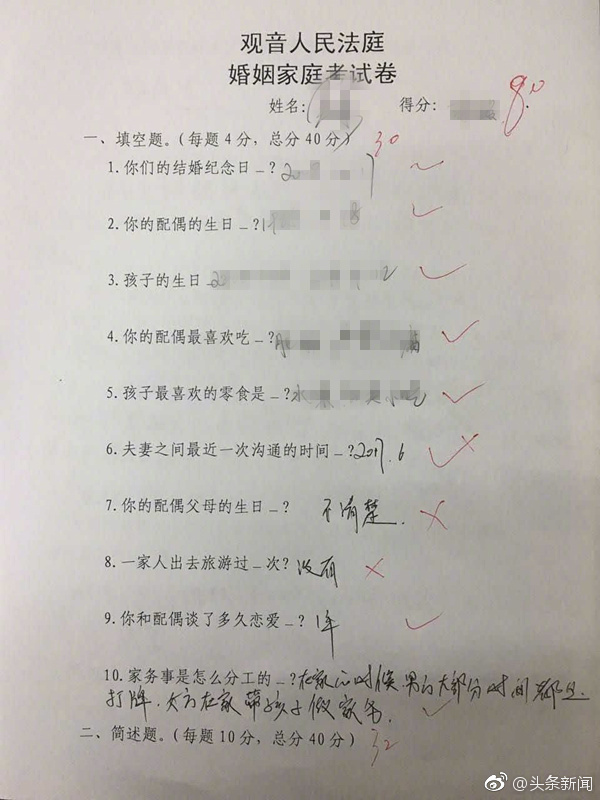 观音人民法庭
婚姻家庭考试卷
姓名: 得分: 80
一、填空题。(每题4分，总分40分) 30
1.你们的结婚纪念日_?
2.你的配偶的生日_?
3.孩子的生日_
4.你的配偶最喜欢吃_?
5.孩子最喜欢的零食是_?水
6.夫妻之间最近一次沟通的时间_?2017.6
7.你的配偶父母的生日_? 不清楚.
8.一家人出去旅游过_次? 没有
9.你和配偶谈了多久恋爱_? 1年
10.家务事是怎么分工的_?在家的时候男的大部分时间都是
打牌.女方在家带孩子做家务.
二、简述题。(每题10分，总分40分) 32
@头条新闻